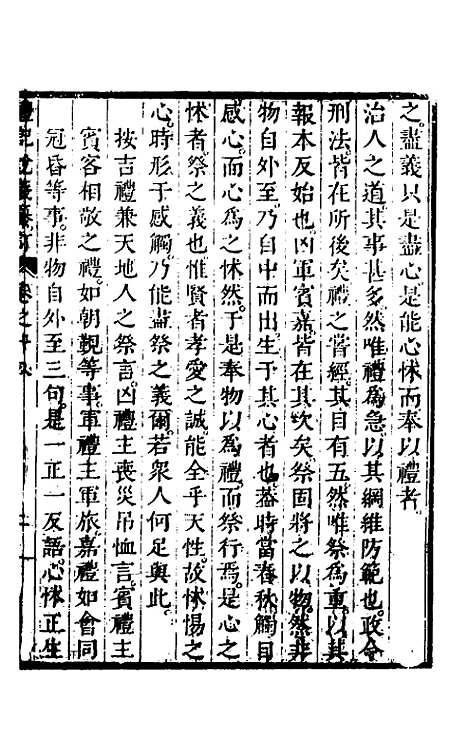 之盡義只是盡心是能心怵而奉以禮者
治人之道其事甚多然唯禮為急以其綱維防範也政令
刑法皆在所後矣禮之嘗經其目有五然唯祭為重以其
報本反始也凶軍賓嘉皆在其次矣祭固將之以物然非
物自外至乃自中而出生于其心者也蓋時當春秋觸目
感心而心為之怵然于是奉物以為禮而祭行焉是心之
怵者祭之義也惟賢者孝愛之誠能全乎天性故怵惕之
心時形于感觸乃能盡祭之義爾若衆人何足與此
按吉禮兼天地人之祭言凶禮主喪災吊恤言賓禮主
賓客相敬之禮如朝覲等事軍禮主軍旅嘉禮如會同
冠昏等事非物自外至三句是一正一反語心怵正生
禮記 卷之